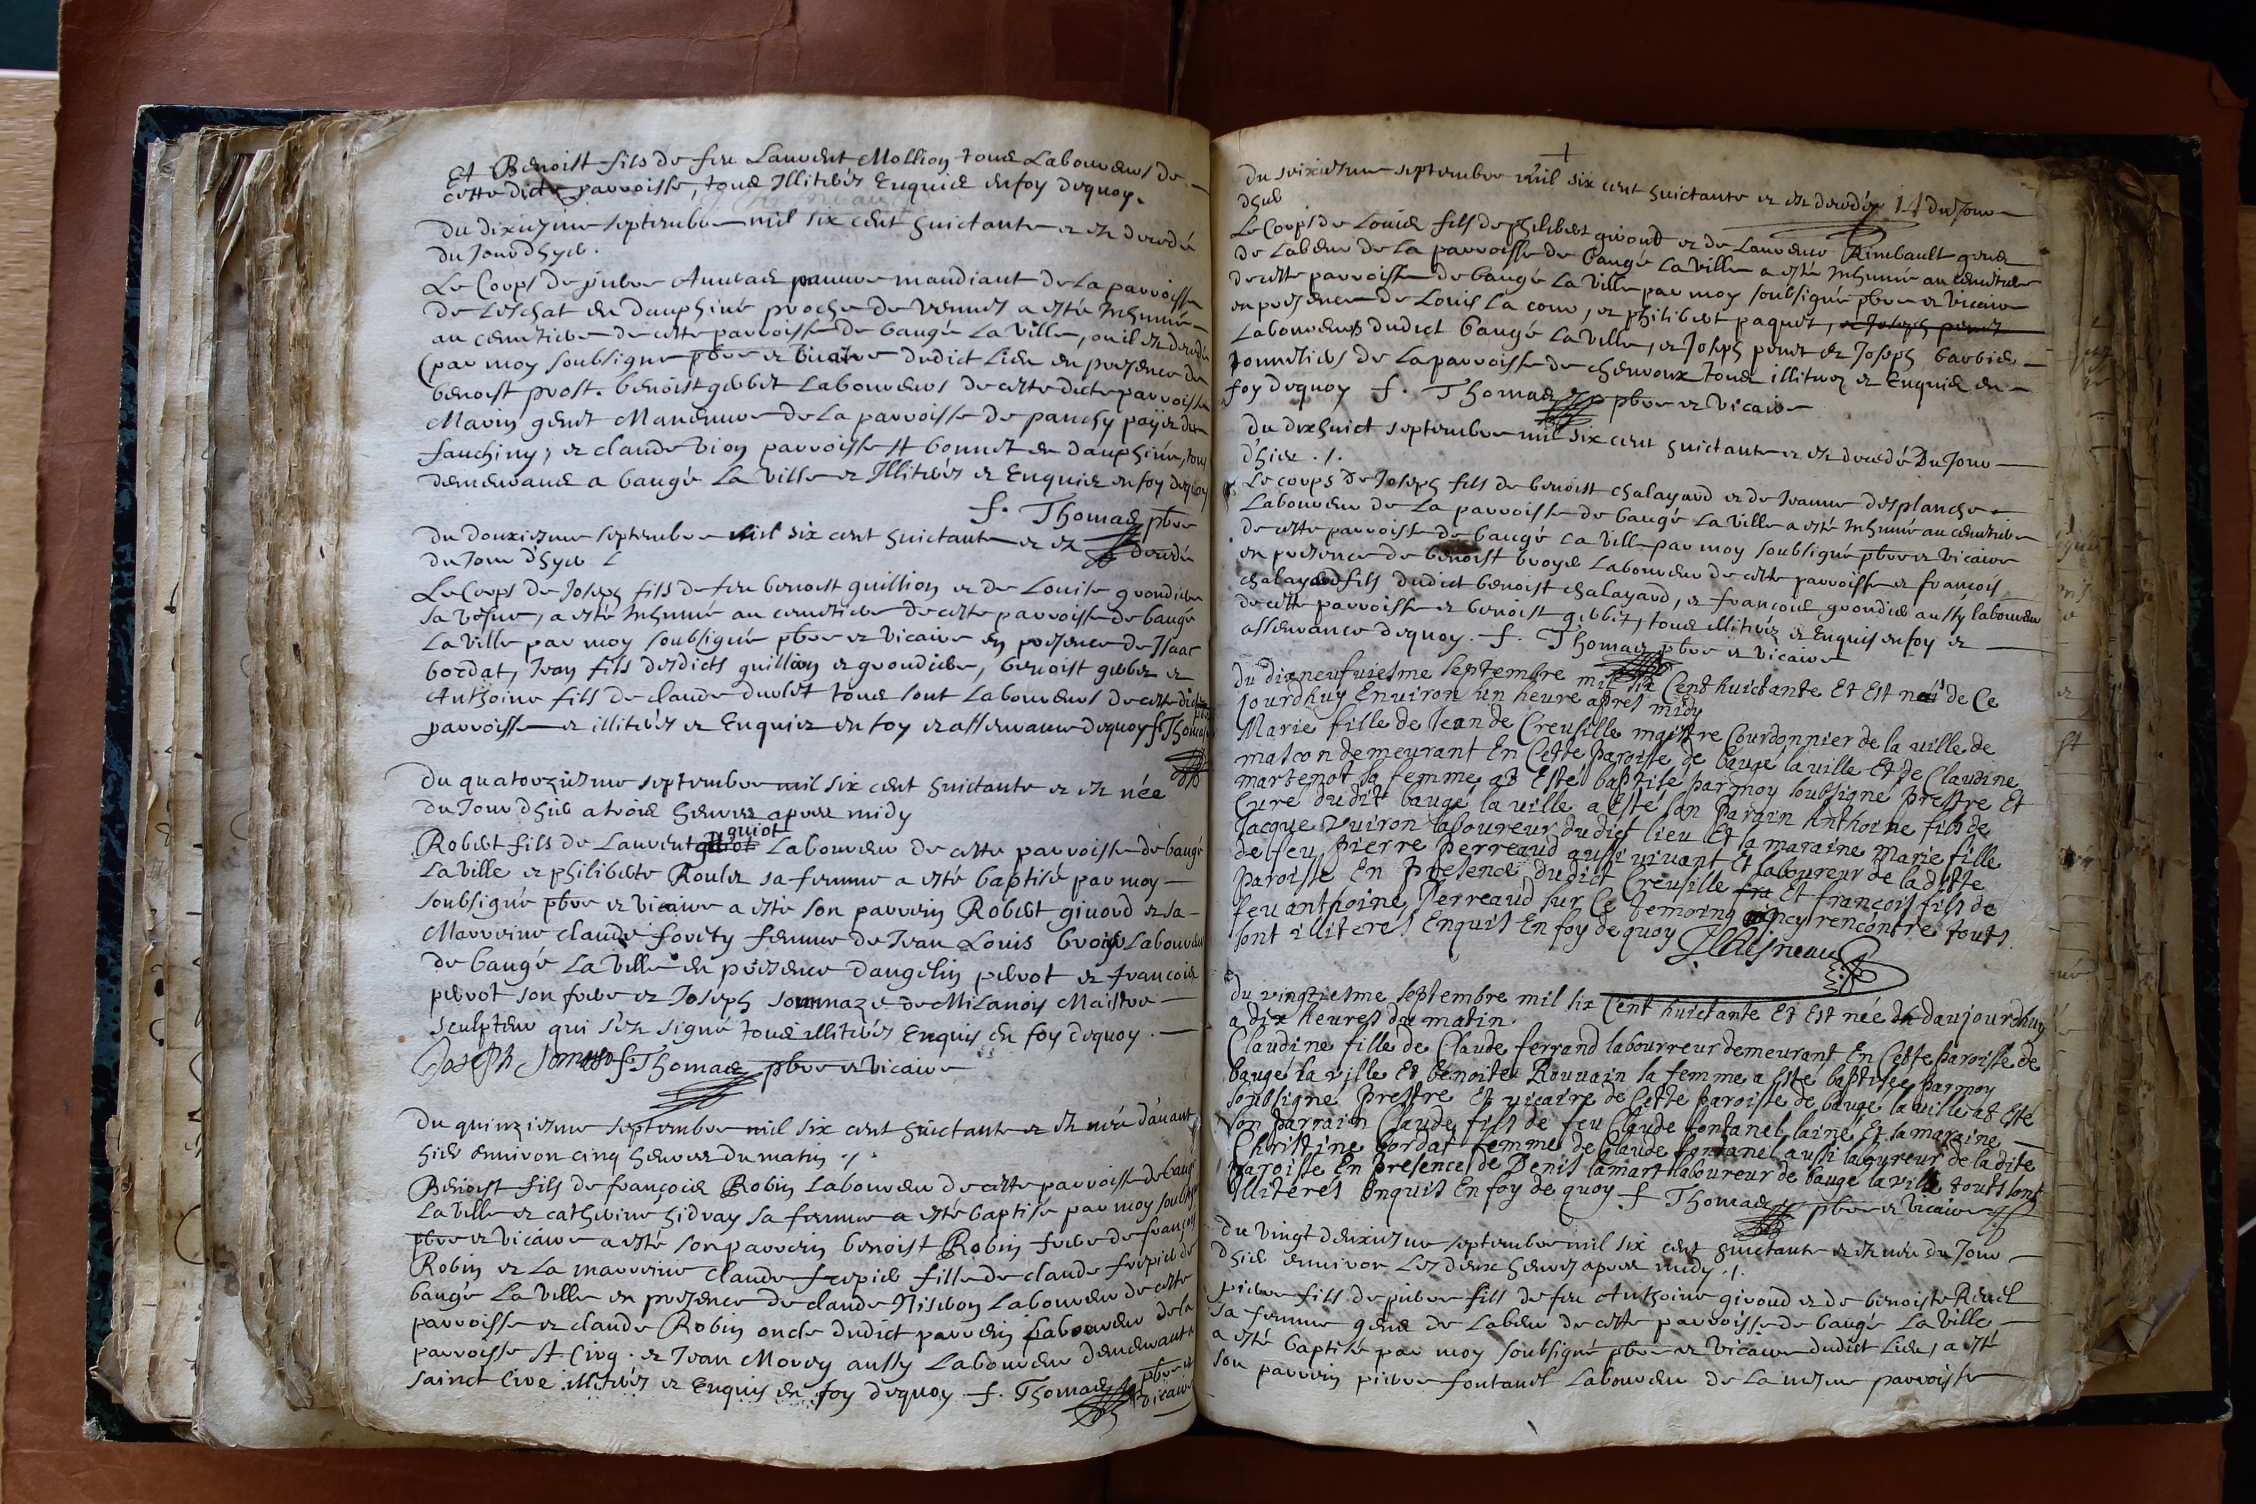 Et Benoist fils de feu Laurent Mollion tous Laboureurs de
cette dicte parroisse, tous Illiterés Enquis en foy dequoy.
Du dixiesme septembre mil six cent huictante et est decedé
du Jour dhyer.
Le Corps de pierre pauure mandiant de La parroisse
de en dauphiné proche de a esté Inhumé
au cemetiere de cette parroisse de baugé La ville, ou il est decedé
par moy soubsigné pbre et vicaire dudict Lieu en presence de
benoist prost. benoist gerbet Laboureurs de cette dicte parroisse
Marin genet de La parroisse de payis de
fauchiny, et claude vion parroisse st bonnet en dauphiné, tous
demeurans a baugé La ville et Illiterés et Enquis en foy dequoy
f. Thomas pbre
Du douxiesme septembre mil six cent huictante et est decedé
du Jour d'hyer
Le Corps de Joseph fils de feu benoist guillion et de Louise grondier
sa vefue, a esté Inhumé au cemetiere de cette parroisse de baugé
La ville par moy soubsigné pbre et vicaire en presence de Isaac
bordat, Jean fils desdicts guillion et grondiere, benoist gerbet et
Anthoine fils de claude duolet tous sont Laboureurs de cette dicte
parroisse et illiterés et Enquis en foy et asseurance dequoy f Thomas
Du quatorziesme septembre mil six cent huictante et est née
du Jour dhier a trois heures apres midy
Robert fils de Laurent guiot Laboureur de cette parroisse de baugé
La ville et philiberte Roulet sa femme a esté baptisé par moy
soubsigné pbre et vicaire a esté son parrein Robert giroud et sa
Marreine claude fority femme de Jean Louis broye Laboureur
de baugé La ville en presence dangelin perrot et francois
perrot son frere et Joseph sommaze de Milanois Maistre
sculpteur qui s'est signé tous illiterés Enquis en foy dequoy.
Joseph f. Thomas pbre et vicaire
Du quinziesme septembre mil six cent huictante et est née dauant
hier enuiron cinq heures du matin ./.
Benoist fils de francois Robin Laboureur de cette parroisse de baugé
La ville et catherine hidray sa femme a esté baptisé par moy soubsigné
pbre et vicaire a esté son parrein benoist Robin frere de francois
Robin et La marreine claude frepier fille de claude frepier de
baugé La ville en presence de claude Nisebon Laboureur de cette
parroisse et claude Robin oncle dudict parrein Laboureur de la
parroisse st Cirq. et Jean Morey aussy Laboureur demeurant
sainct Cire illiterés et Enquis en foy dequoy f. Thomas pbre et
vicaire
Du seixiesme septembre mil six cent huictante et est decedés 14 du Jour
dhier
Le Corps de Louis fils de philibert giroud et de Laurence Rimbault gens
de Labeur de La parroisse de baugé La ville a esté Inhumé au cemetiere
de cette parroisse de baugé La ville par moy soubsigné pbre et vicaire
en presence de Louis La cour, et philibert paquet, et Joseph penet
Laboureurs dudict baugé La ville, et Joseph penet et Joseph barbier
tonneliers de La parroisse de cheuroux tous illiterez et Enquis en
foy dequoy f. Thomas pbre et vicaire
Du dixhuict septembre mil six cent huictante et est decedé Du Jour
d'hier ./.
Le corps de Joseph fils de benoist chalayard et de Jeanne desplanche
Laboureur de La parroisse de baugé La ville a esté Inhumé au cemetiere
de cette parroisse de baugé La ville par moy soubsigné pbre et vicaire
en presence de benoist broye Laboureur de cette parroisse et francois
chalayard fils dudict benoist chalayard, et francois grondier aussy laboureur
de cette parroisse et benoist gerbet, tous illiterés et Enquis en foy et
asseurance dequoy. f. Thomas pbre et vicaire
Du dixneufuiesme septembre mil six Cent huictante Et Est née de Ce
jourdhuy Enuiron un heure apres midy
Marie fille de Jean de Creusille maistre Courdonnier de la uille de
mascon demeurant En Cette paroisse de baugé la uille Et de Claudine
martenot sa femme at Esté baptisé par moy soubsigné prestre Et
Curé dudit baugé la uille a Esté son parain Anthoine fils de
Jacque vuiron laboureur dudict lieu Et la maraine Marie fille
de feu pierre perreaud aussi uiuant Et laboureur de la ditte
paroisse En presence dudict Creusille fra Et francois fils de
feu anthoine Perreaud sur Ce temoing rencontré touts
sont illiteres Enquis En foy de quoy
Du vingtiesme septembre mil six Cent huictante Et Est née daujourdhuy
a dix heures du matin.
Claudine fille de Claude ferrand labourreur demeurant En Cette paroisse de
baugé la uille Et benoite Rouuain sa femme a Esté baptisée par moy
soubsigné prestre Et vicaire de Cette paroisse de baugé la uille at Esté
son parrain Claude fils de feu Claude fontanel lainé Et la maraine
Christine bordat femme de Claude fontanel aussi laboureur de la dite
paroisse En presence de Denis lamart laboureur de baugé la uille touts sont
illiterés Enquis En foy de quoy f Thomas pbre et vicaire
Du vingt deuxiesme septembre mil six cent huictante et est née du Jour
dhier enuiron Les deux heures apres midy ./.
pierre fils de pierre fils de feu Anthoine giroud et de benoiste
sa femme gens de Labeur de cette parroisse de baugé La ville
a esté baptisé par moy soubsigné pbre et vicaire dudict Lieu, a esté
son parrein pierre fontanel Laboureur de La mesme parroisse